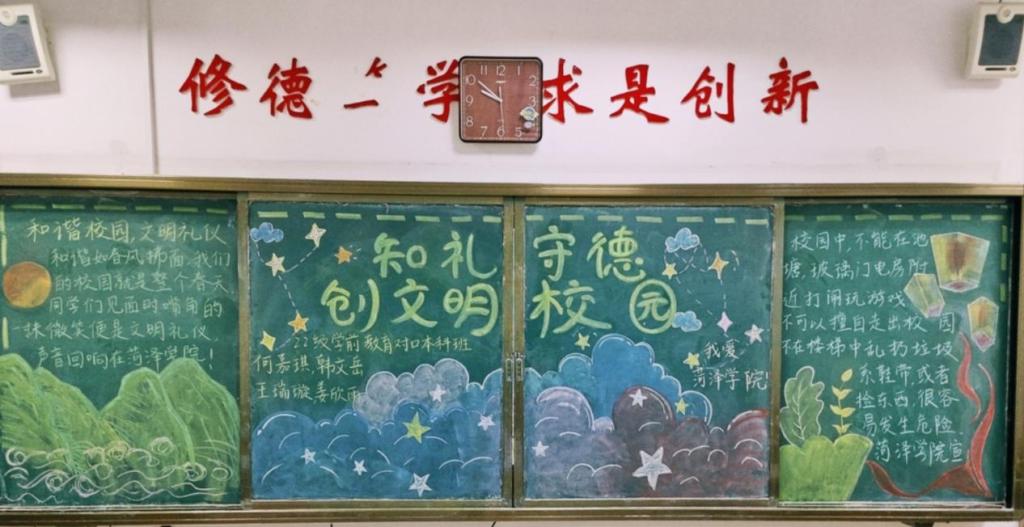 修德 学 求是创新
11 12 1
10 2
9 3
8
7 6 5
和谐校园,文明礼仪
和谐如春风拂面,我们
的校园就是整个春天
同学们见面时嘴角的
一抹微笑便是文明礼仪
声音回响在菏泽学院!
知礼 守德
创文明 校园
22级学前教育对口本科班
何嘉琪 韩文岳
王瑞璇 姜欣雨
我爱
菏泽学院!
校园中,不能在池
塘,玻璃门电房附
近打闹玩游戏
不可以擅自走出校园
不在楼梯中乱扔垃圾
系鞋带,或者
捡东西,很容
易发生危险.
菏泽学院宣